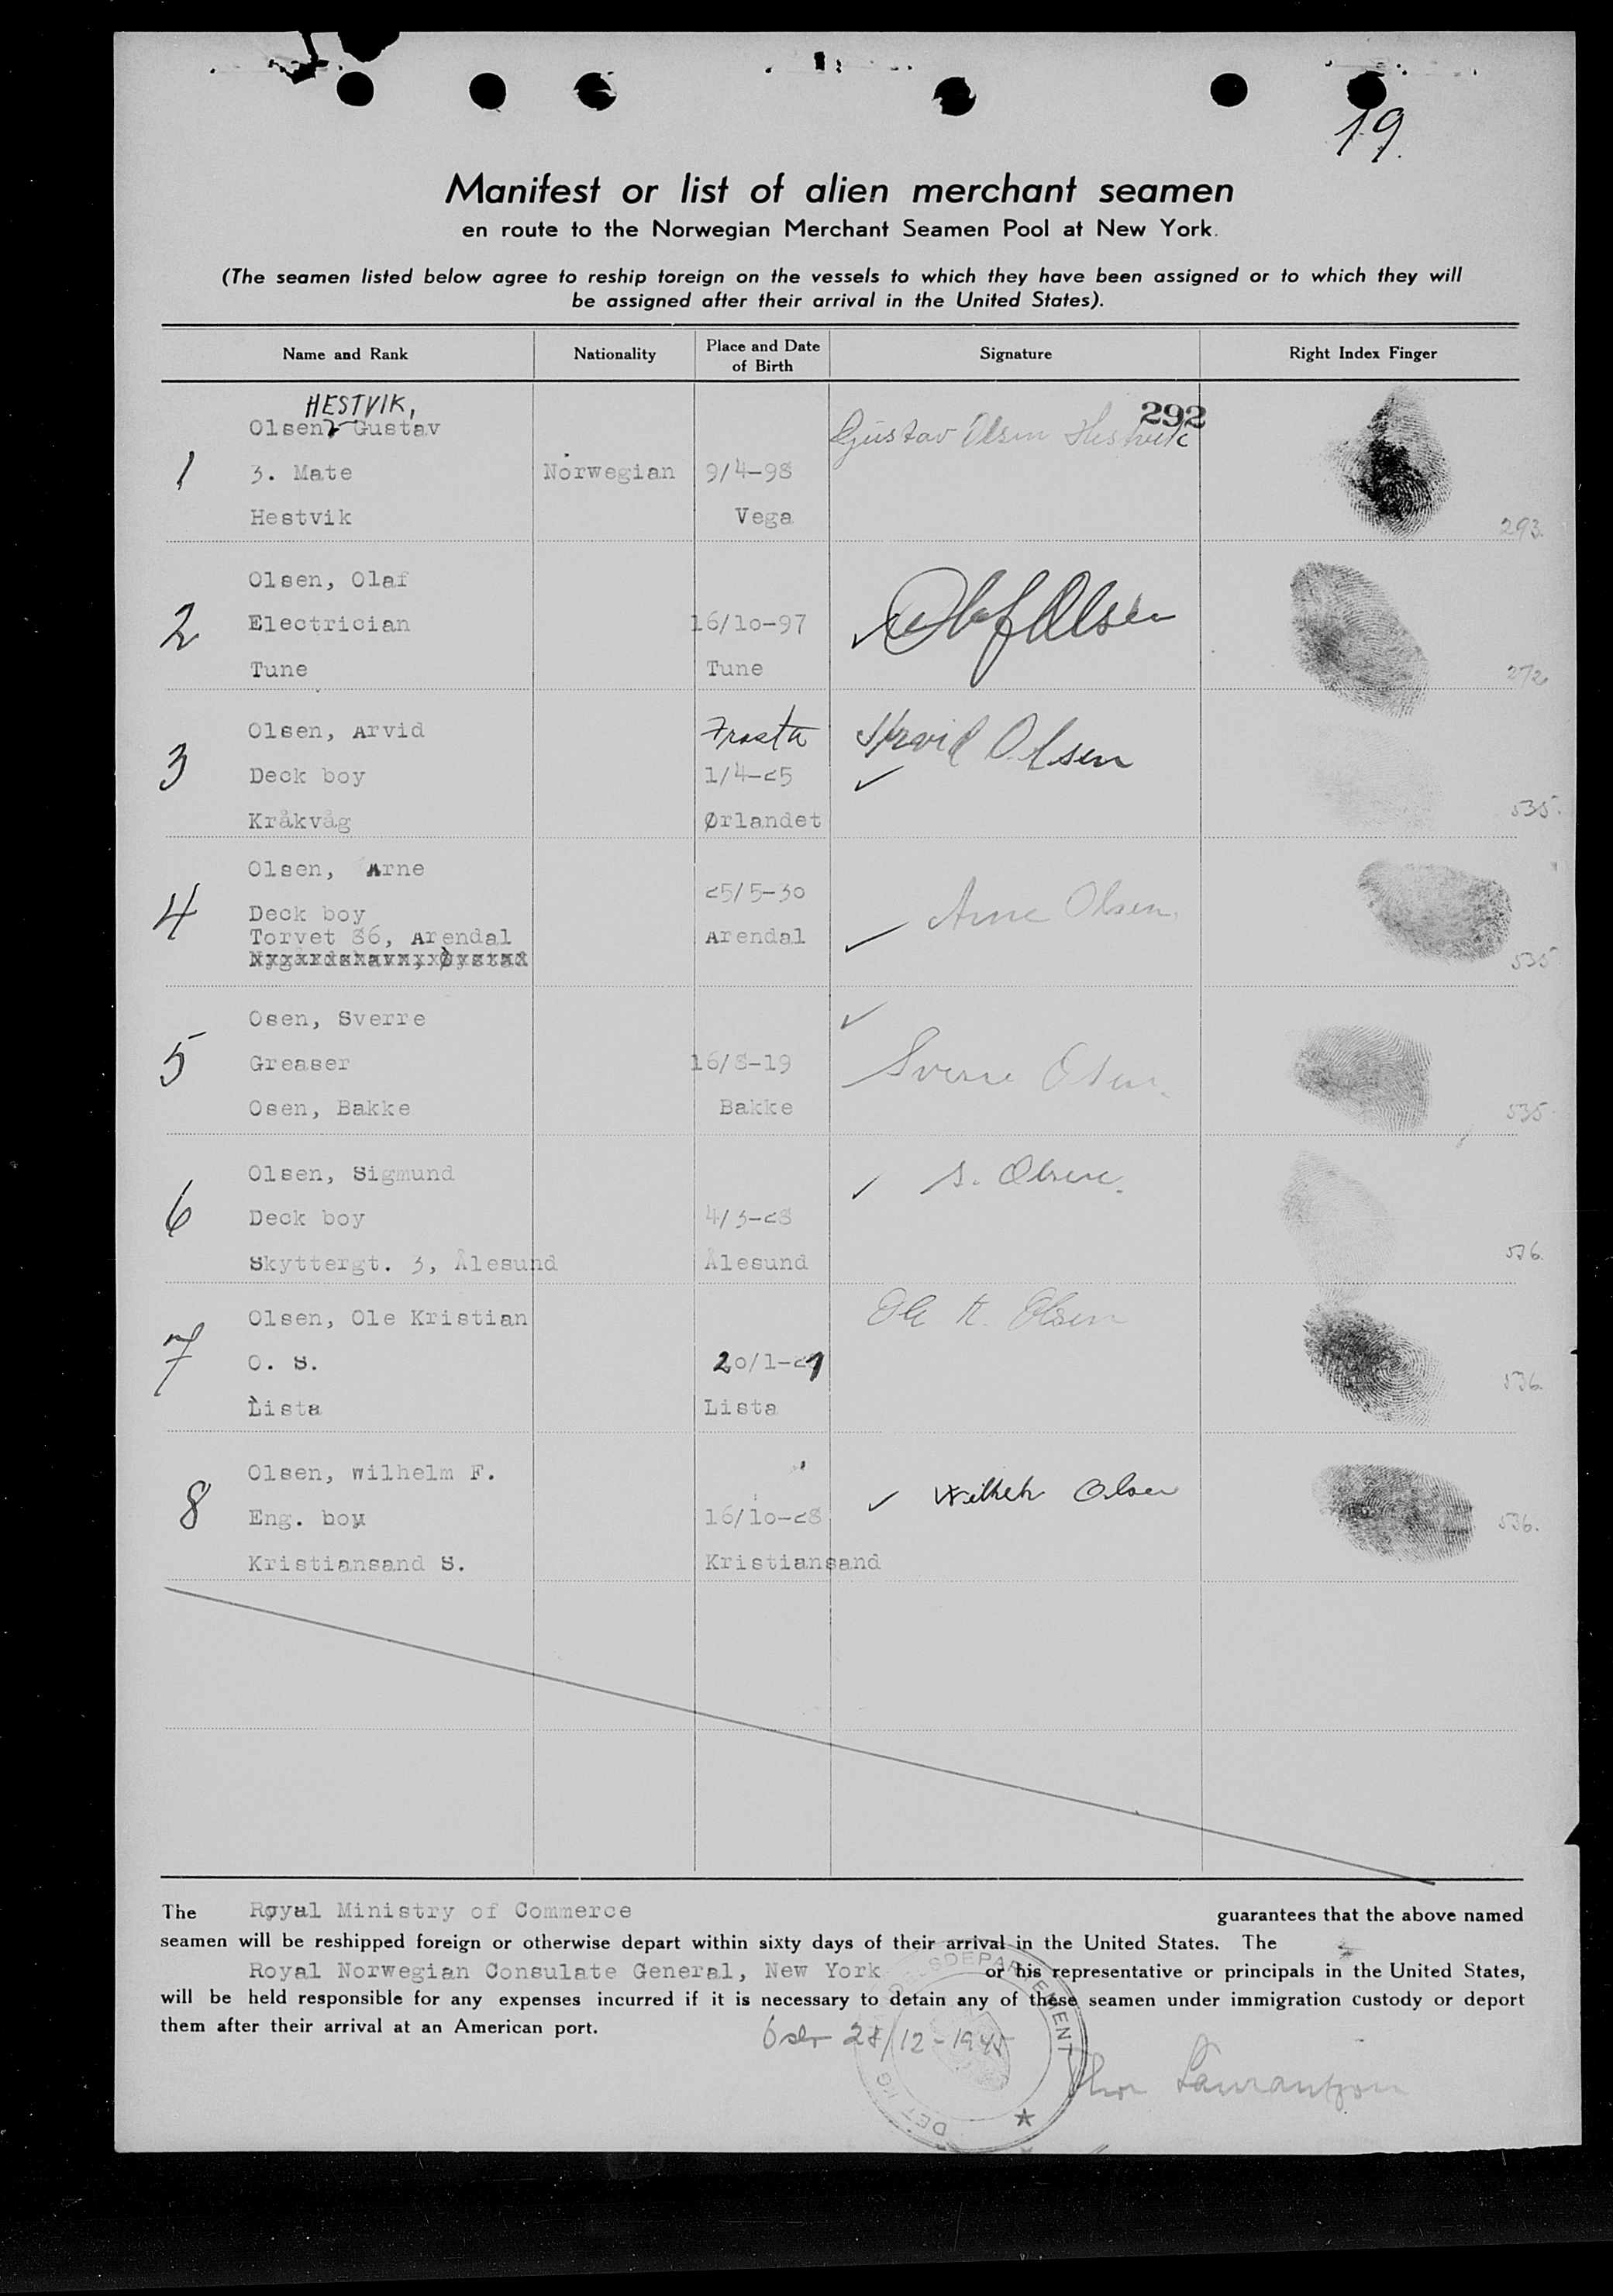 19.
Manifest or list of alien merchant seamen
en route to the Norwegian Merchant Seamen Pool at New York.
(The seamen listed below agree to reship foreign on the vessels to which they have been assigned or to which they will
be assigned after their arrival in the United States).
Name and Rank Nationality Place and Date of Birth Signature Right Index Finger
HESTVIK, 292
Olsen, Gustav Gustav Olsen Hestvik
1 3. Mate Norwegian 9/4-98
Hestvik Vega 293.
Olsen, Olaf
2 Electrician 16/10-97 Olaf Olsen
Tune Tune 272
Olsen, Arvid Frosta Arvid Olsen
3 Deck boy 1/4-25
Kråkvåg Ørlandet 535.
Olsen, Arne 25/5-30
4 Deck boy Arne Olsen.
Torvet 86, Arendal Arendal
535
Osen, Sverre
5 Greaser 16/8-19 Sverre Osen.
Osen, Bakke Bakke 535
Olsen, Sigmund S. Olsen.
6 Deck boy 4/3-28
Skyttergt. 3, Ålesund Ålesund 536.
Olsen, Ole Kristian Ole K. Olsen
7 O. S. 20/1-27
Lista Lista 536.
Olsen, Wilhelm F. Wilhelm Olsen
8 Eng. boy 16/10-28 536.
Kristiansand S. Kristiansand
The Royal Ministry of Commerce guarantees that the above named
seamen will be reshipped foreign or otherwise depart within sixty days of their arrival in the United States. The
Royal Norwegian Consulate General, New York or his representative or principals in the United States,
will be held responsible for any expenses incurred if it is necessary to detain any of these seamen under immigration custody or deport
them after their arrival at an American port.
Oslo 28/12-1945
DET KG
DEPARTEMENT